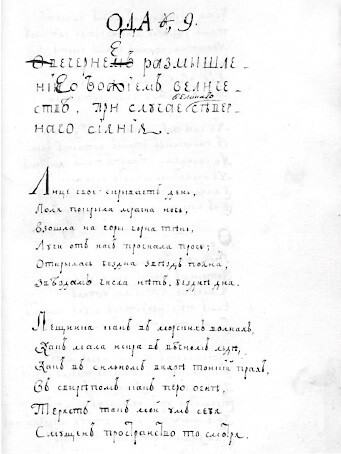 ОДА 9.
Вечернее размышле-
ніе о Божіемъ величе-
великаго
ствѣ, при случае сѣвер-
наго сіянія.
Лице свое скрываетъ день,
Поля покрыла мрачна ночь,
Взошла на горы чорна тѣнь,
Лучи отъ насъ прогнала прочь;
Открылась бездна звѣздъ полна,
Звѣздамъ числа нѣтъ, безднѣ дна.
Песчинка какъ въ морскихъ волнахъ,
Какъ мала искра въ вѣчномъ льдѣ,
Какъ въ сильномъ вихрѣ тонкій прахъ,
Въ свирѣпомъ какъ перо огнѣ,
Теряетъ такъ мой умъ себя
Смущенъ пространство то смотря.